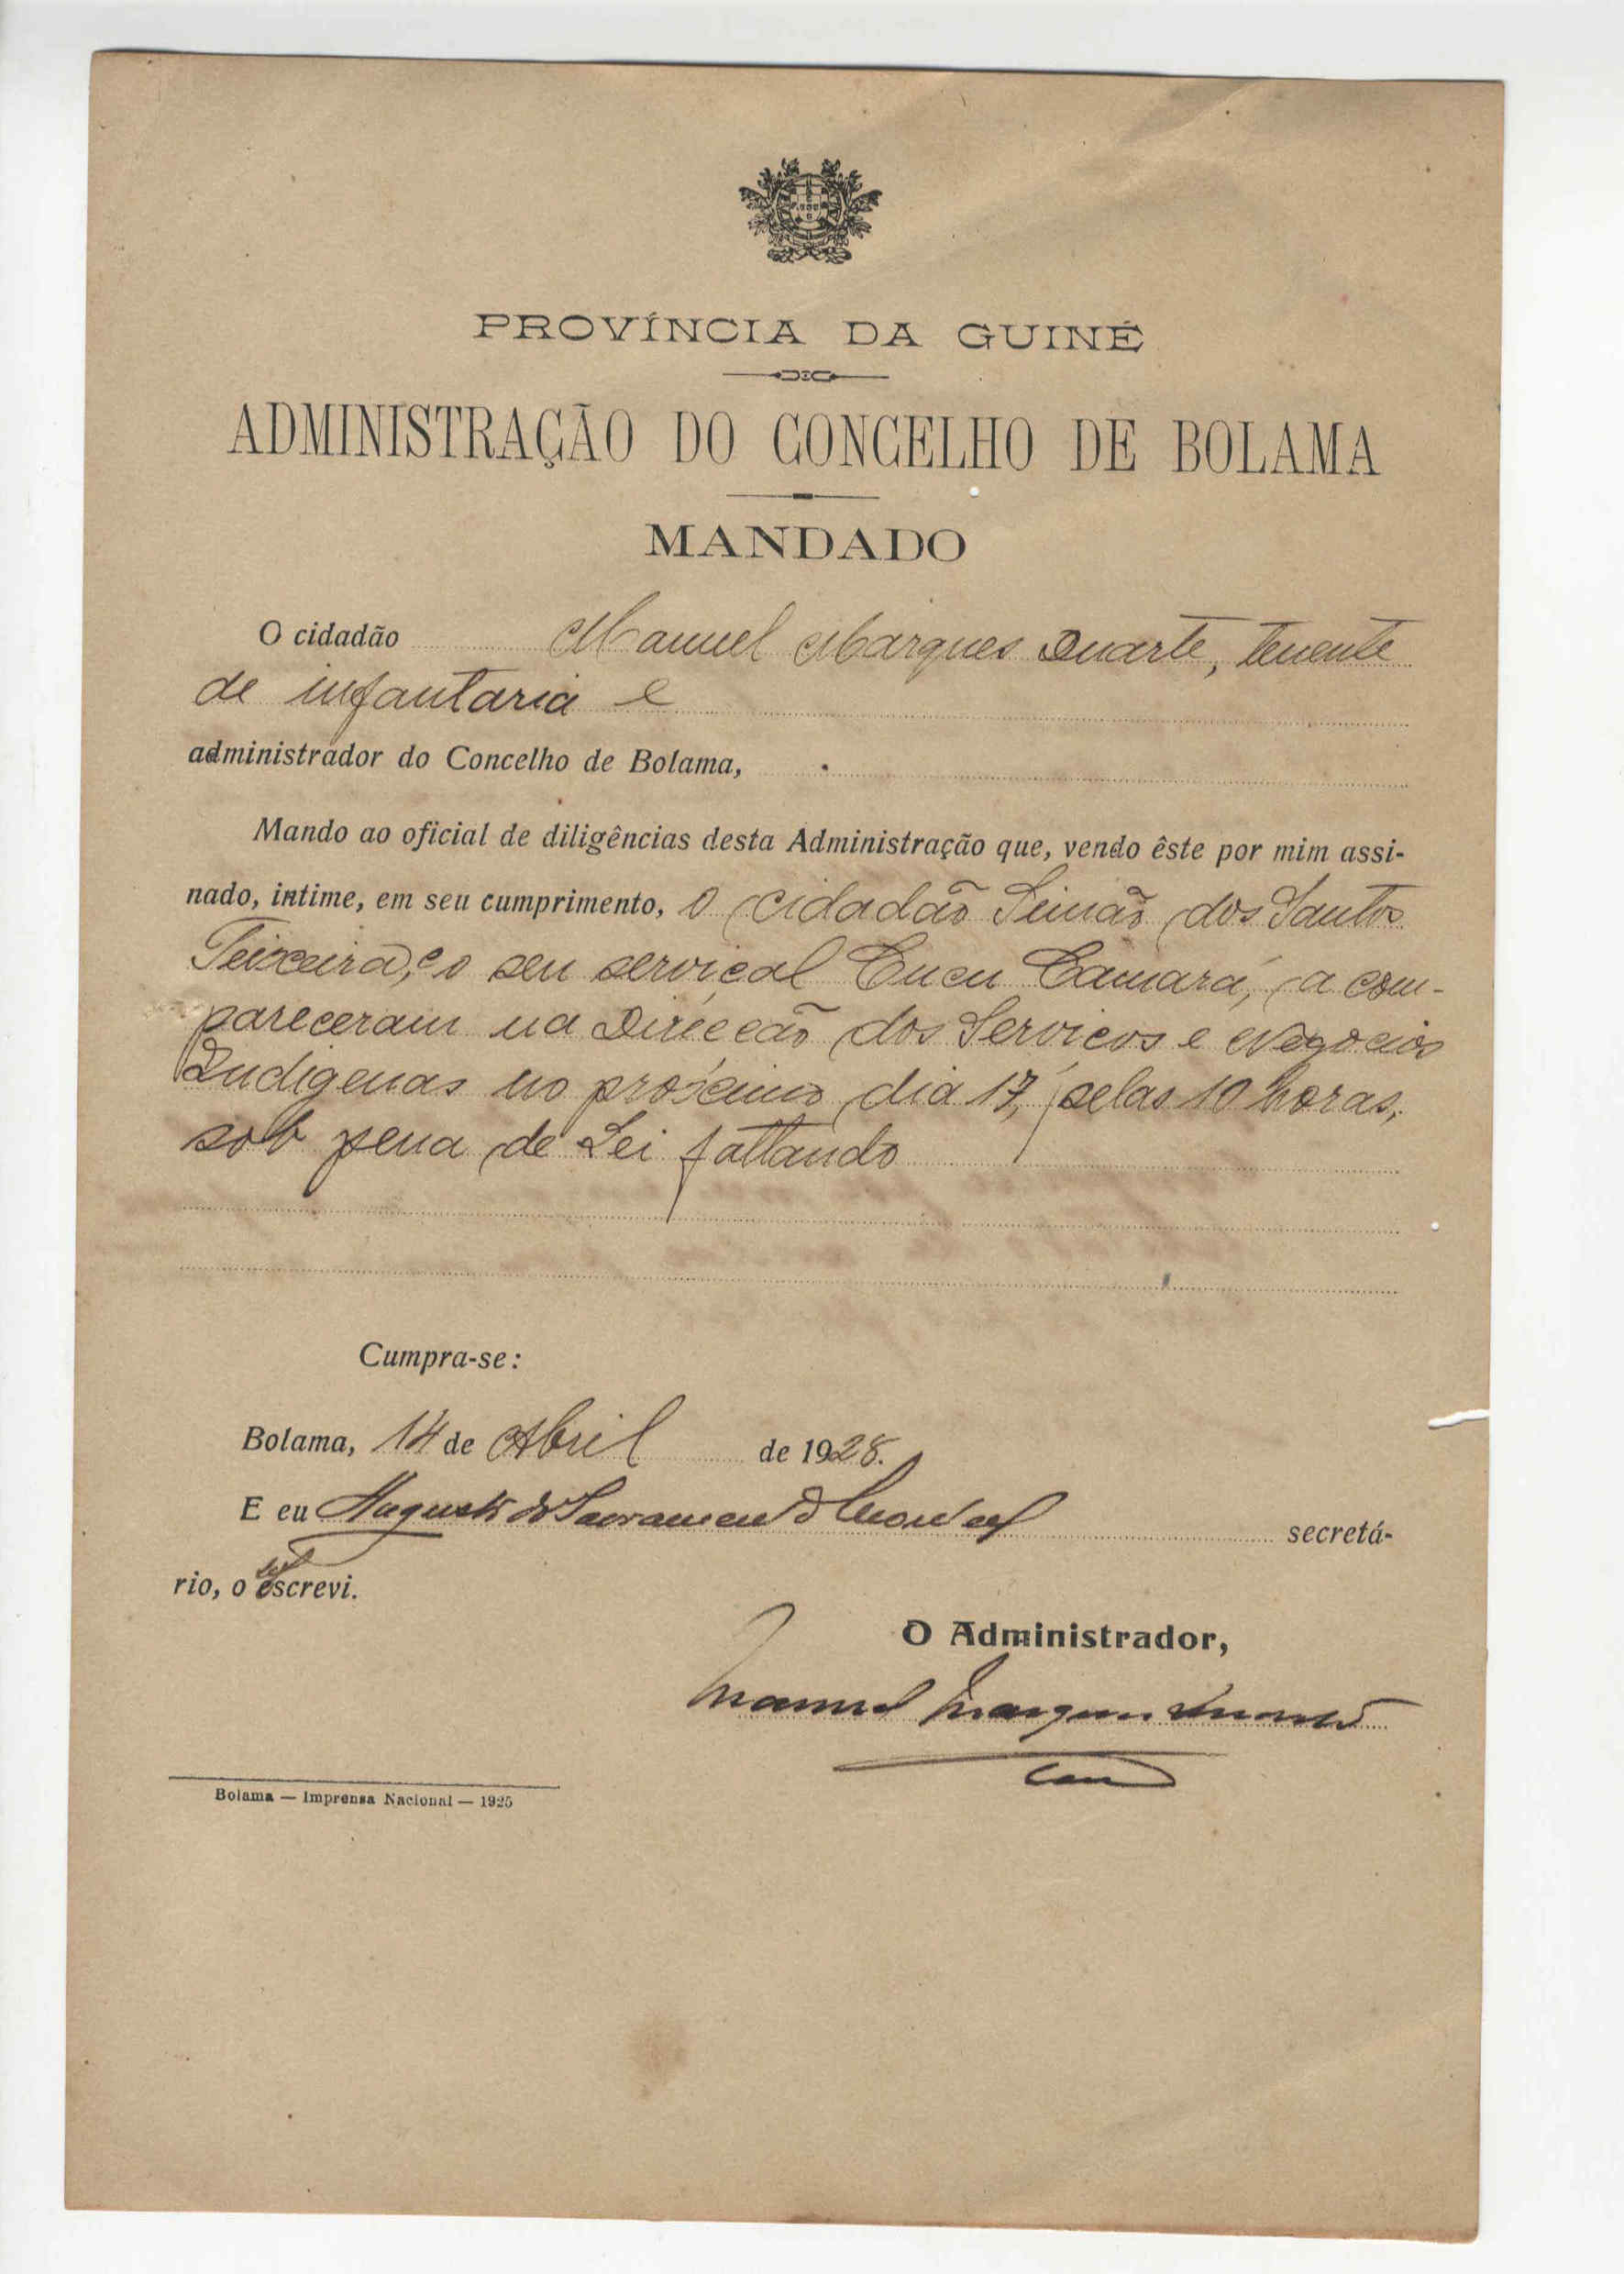 PROVÍNCIA DA GUINÉ
ADMINISTRAÇÃO DO CONCELHO DE BOLAMA
MANDADO
O cidadão Manuel Marques Duarte, tenente
de infantaria e
administrador do Concelho de Bolama,
Mando ao oficial de diligências desta Administração que, vendo êste por mim assi-
nado, intime, em seu cumprimento, o cidadão Simão dos Santos
Teixeira, e o seu serviçal Camará, a com-
pareceram na Direcção dos Serviços e Negocios
Indigenas no próximo dia 17, pelas 10 horas,
sob pena de Lei faltando
Cumpra-se:
Bolama, 14 de Abril de 1928.
E eu Augusto do Sacramento secretá-
rio, o escrevi.
O Administrador,
Manuel Marques Duarte
Bolama — Imprensa Nacional — 1925